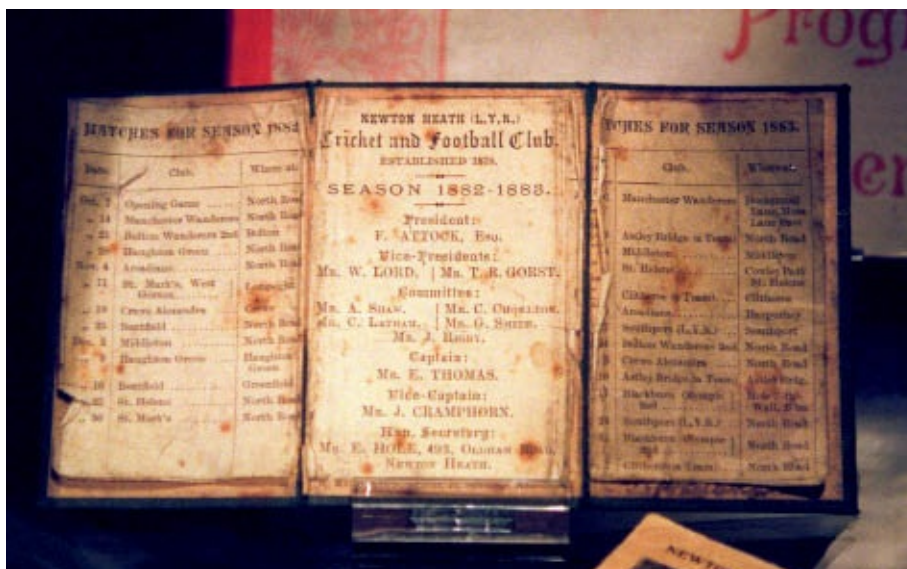 Prog
MATCHES FOR SEASON 1882
Date. Club. Where at.
Oct. 7 Opening Game North Road
„ 14 Manchester Wanderers North Road
„ 21 Bolton Wanderers 2nd Bolton
„ 28 Haughton Green North Road
Nov. 4 Arcadians North Road
„ 11 St. Mark's, West
Gorton
„ 18 Crewe Alexandra Crewe
„ 25 Bentfield North Road
Dec. 2 Middleton North Road
„ 9 Haughton Green Haughton
Green
„ 16 Bentfield Greenfield
St. Helens North Road
„ 30 St. Mark's North Road
NEWTON HEATH (L.Y.R.)
Cricket and Football Club.
ESTABLISHED 1878.
SEASON 1882-1883.
President:
F. ATTOCK, Esq.
Vice-Presidents:
Mr. W. LORD. Mr. T. R. GORST.
Committee:
Mr. A. Shaw. Mr. C.
Mr. C. Latham. Mr. G. Smith.
Mr. J. Rigby.
Captain:
Mr. E. THOMAS.
Vice-Captain:
Mr. J. CRAMPHORN.
Hon. Secretary:
Mr. E. HOLE, 493, Oldham Road,
Newton Heath.
TCHES FOR SEASON 1883.
Club. Where at.
Manchester Wanderers
Lane, Moss
Lane East
Astley Bridge Team North Road
Middleton Middleton
St. Helens Cowley Park
St. Helens
Clitheroe Team) Clitheroe
Arcadians Harpurhey
Southport (L.Y.R.) Southport
Bolton Wanderers 2nd North Road
Crewe Alexandra North Road
Astley Bridge Team
Blackburn Olympic
2nd
Southport (L.Y.R.) North Road
Blackburn Olympic
2nd North Road
Clitheroe Team) North Road
er
NEWTON